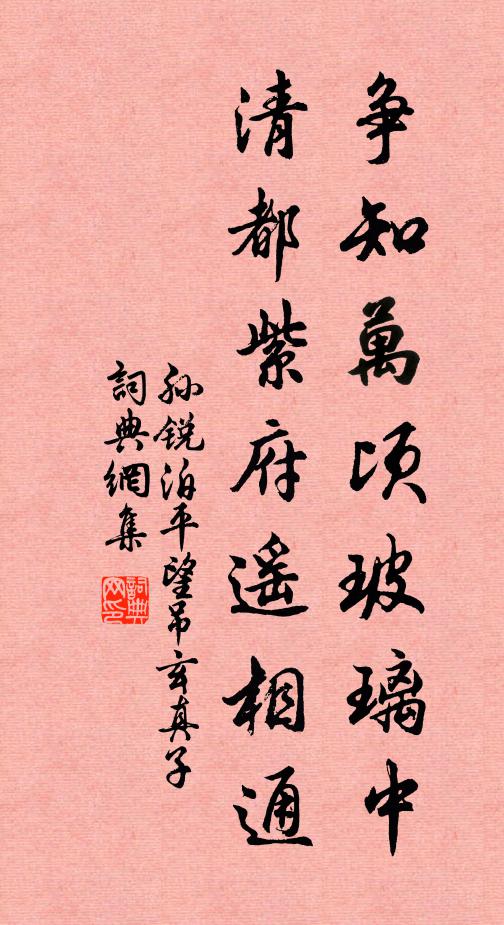 爭知萬頃玻璃中
清都紫府遥相通
孫銳泊平望吊玄真子
詞典網集
詞典網印